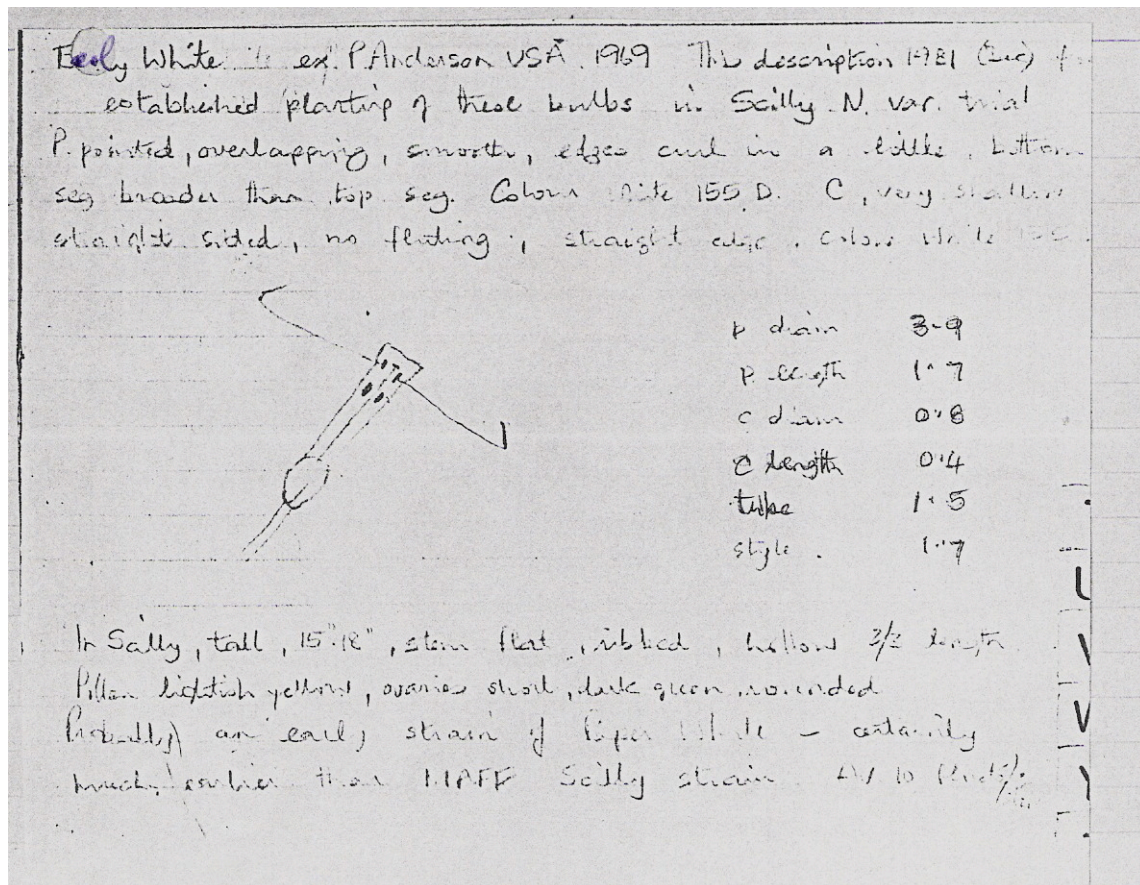 Early White ex P. Anderson USA 1969 This description 1981 (Dec)
established planting of these bulbs in Scilly N. var. trial
P. pointed, overlapping, smooth, edges curl in a little, bottom
seg broader than top seg. Colour White 155 D. C, very shallow
straight sided, no fluting, straight edge. Colour White
p diam 3.9
P. length 1.7
c diam 0.8
c length 0.4
tube 1.5
style. 1.7
In Scilly, tall, 15"-18", stem flat, ribbed, hollow 2/3 length
Pollen lightish yellow, ovaries short, dark green, rounded
Probably an early strain of Paper White - certainly
much earlier than MAFF Scilly strain. Av 10